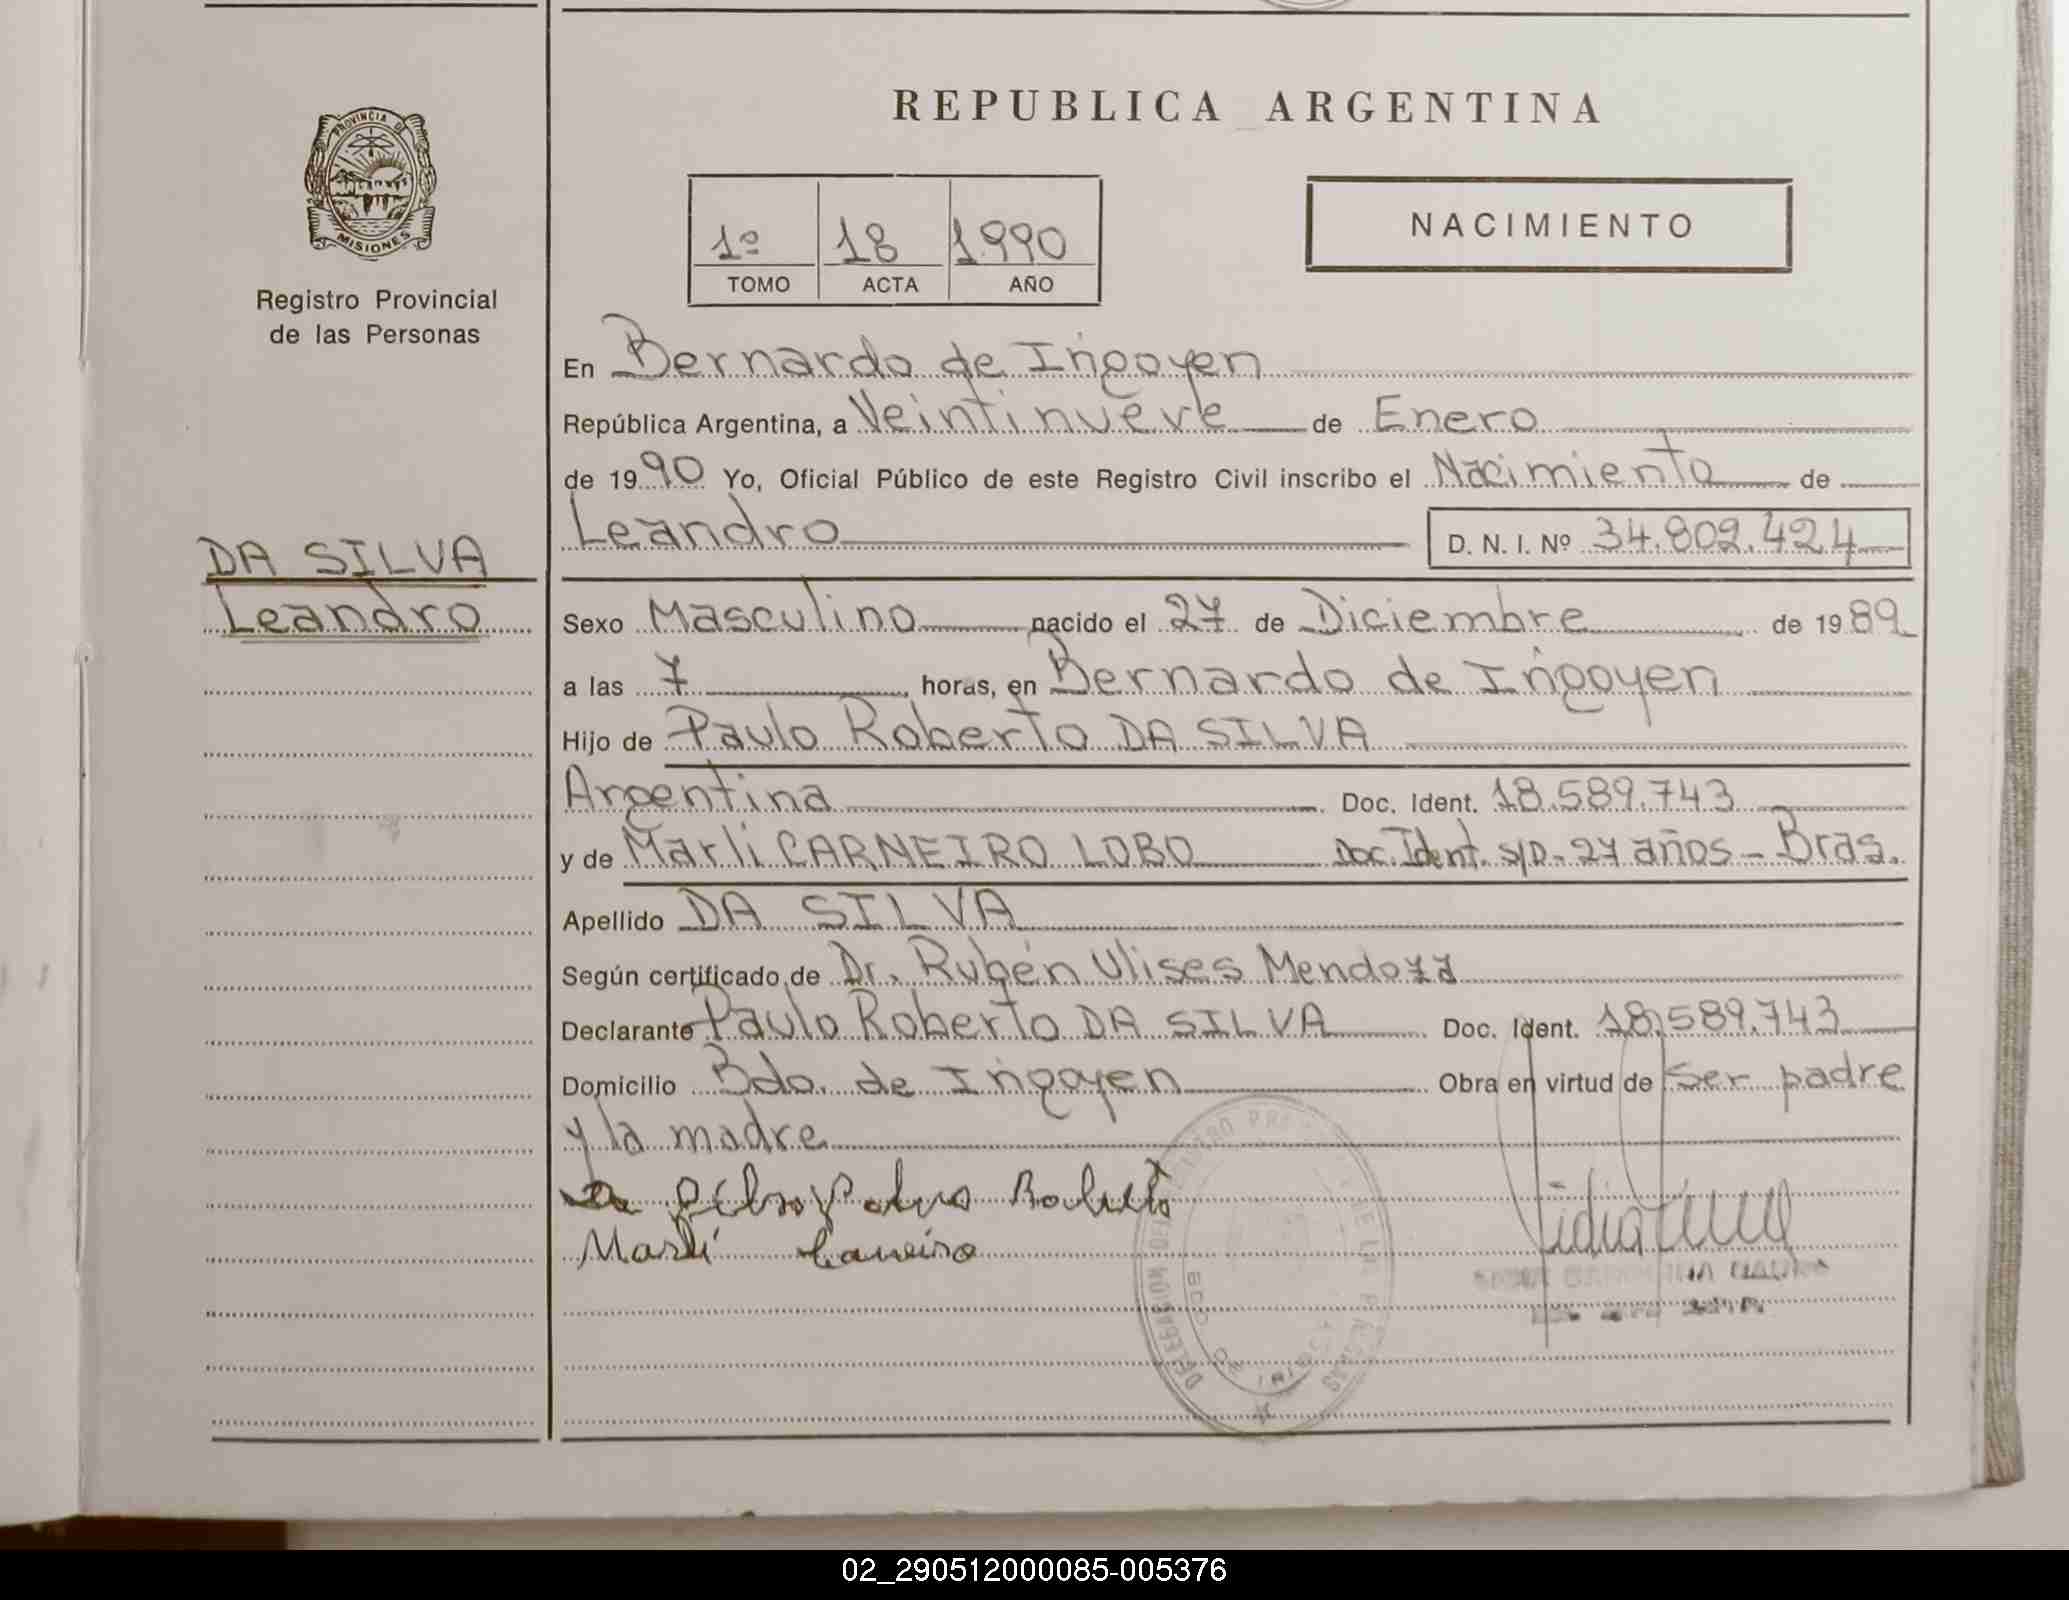 REPUBLICA ARGENTINA
PROVINCIA DE
MISIONES
Registro Provincial
de las Personas
1º 18 1990
TOMO ACTA AÑO
NACIMIENTO
En Bernardo de Irigoyen
República Argentina, a Veintinueve de Enero
de 1990 Yo, Oficial Público de este Registro Civil inscribo el Nacimiento de
Leandro D. N. I. Nº 34.802.424
DA SILVA
Leandro
Sexo Masculino nacido el 27 de Diciembre de 1989
a las 7 horas, en Bernardo de Irigoyen
Hijo de Paulo Roberto DA SILVA
Argentina Doc. Ident. 18.589.743
y de Marli CARNEIRO LOBO Doc. Ident. S/D - 27 años - Bras.
Apellido DA SILVA
Según certificado de Dr. Rubén Ulises Mendoza
Declarante Paulo Roberto DA SILVA Doc. Ident. 18.589.743
Domicilio Bdo. de Irigoyen Obra en virtud de ser padre
y la madre
Marli Carneiro
02_290512000085-005376